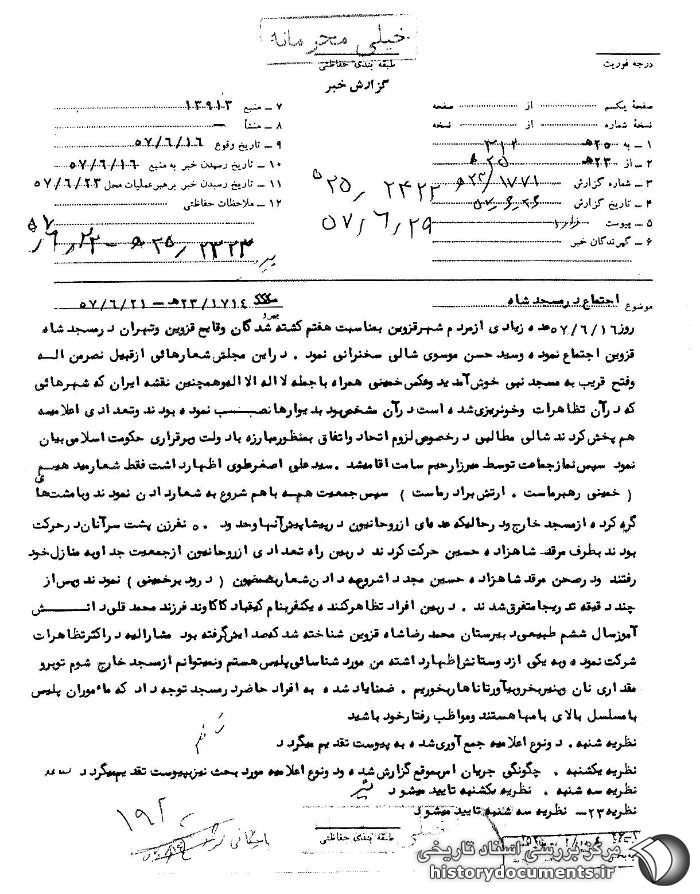 خیلی محرمانه
طبقه بندی حفاظتی
درجه فوریت
گزارش خبر
صفحه یکم از صفحه
نسخه شماره از نسخه
۱ - به ۲۵هـ ۳۱۲
۲ - از ۲۳هـ
۳ - شماره گزارش ۲۲/۱۷۷۱هـ
۴ - تاریخ گزارش
۵ - پیوست دارد
۶ - گیرندگان خبر
۷ - منبع ۱۳۹۱۳
۸ - منشأ
۹ - تاریخ وقوع ۵۷/۶/۱۶
۱۰ - تاریخ رسیدن خبر به منبع ۵۷/۶/۱۶
۱۱ - تاریخ رسیدن خبر برهبر عملیات محل ۵۷/۶/۲۳
۱۲ - ملاحظات حفاظتی
۲۵/۲۴۲۲هـ
۵۷/۶/۲۹
موضوع اجتماع در مسجد شاه ۲۳/۱۷۱۴هـ - ۵۷/۶/۲۱
روز ۵۷/۶/۱۶ عده زیادی از مردم شهر قزوین بمناسبت هفتم کشته شدگان وقایع قزوین وتهران در مسجد شاه
قزوین اجتماع نموده وسید حسن موسوی شالی سخنرانی نمود . در این مجلس شعارهائی از قبیل نصر من اله
وفتح قریب به مسجد نبی خوش آمدید وعکس خمینی همراه با جمله لا اله الا اله وهمچنین نقشه ایران که شهرهائی
که در آن تظاهرات وخونریزی شده است در آن مشخص بود بدیوارها نصب نموده بودند وتعدادی اعلامیه
هم پخش کردند شالی مطالبی در خصوص لزوم اتحاد واتفاق بمنظور مبارزه با دولت وبرقراری حکومت اسلامی بیان
نمود سپس نماز جماعت توسط میرزا رحیم سامت اقامه شد . سید علی اصغر علوی اظهار داشت فقط شعار میدهیم
( خمینی رهبر ماست . ارتش برادر ماست ) سپس جمعیت همه باهم شروع به شعار دادن نمودند وبا مشت های
گره کرده از مسجد خارج و در حالیکه عده ای از روحانیون در پیشاپیش آنها وحدود ۵۰ نفر زن پشت سر آنان در حرکت
بودند بطرف مرقد شاهزاده حسین حرکت کردند در بین راه تعدادی از روحانیون از جمعیت جدا وبه منازل خود
رفتند ودر صحن مرقد شاهزاده حسین مجددا شروع به دادن شعار بمضمون ( درود بر خمینی ) نمودند وپس از
چند دقیقه تدریجا متفرق شدند . در بین افراد تظاهر کننده یکنفر بنام کیقباد کاکاوند فرزند محمد قلی دانش
آموز سال ششم طبیعی دبیرستان محمد رضا شاه قزوین شناخته شد که صدایش گرفته بود مشارالیه در اکثر تظاهرات
شرکت نموده وبه یکی از دوستانش اظهار داشته من مورد شناسائی پلیس هستم ونمیتوانم از مسجد خارج شوم تو برو
مقداری نان وپنیر بخر وبیآور تا ناهار بخوریم . ضمنا یاد شده به افراد حاضر در مسجد توجه داد که مأموران پلیس
با مسلسل بالای بامها هستند ومواظب رفتار خود باشید
نظریه شنبه . دو نوع اعلامیه جمع آوری شده به پیوست تقدیم میگردد
نظریه یکشنبه . چگونگی جریان امر بموقع گزارش شده ودو نوع اعلامیه مورد بحث نیز به پیوست تقدیم میگردد
نظریه سه شنبه . نظریه یکشنبه تایید میشود
نظریه ۲۳ - نظریه سه شنبه تایید میشود
طبقه بندی حفاظتی
خیلی
مرکز بررسی اسناد تاریخی
historydocuments.ir